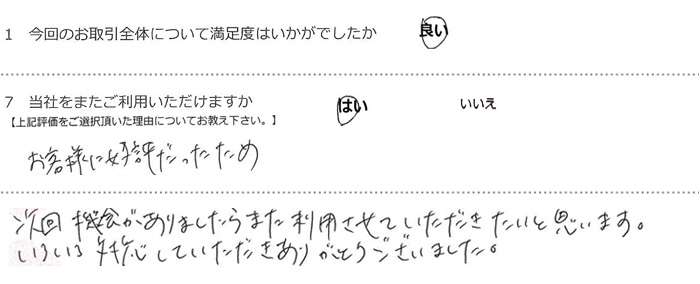 1 今回のお取引全体について満足度はいかがでしたか 良い
7 当社をまたご利用いただけますか はい いいえ
【上記評価をご選択頂いた理由についてお教え下さい。】
お客様に好評だったため
次回機会がありましたらまた利用させていただきたいと思います。
いろいろ対応していただきありがとうございました。